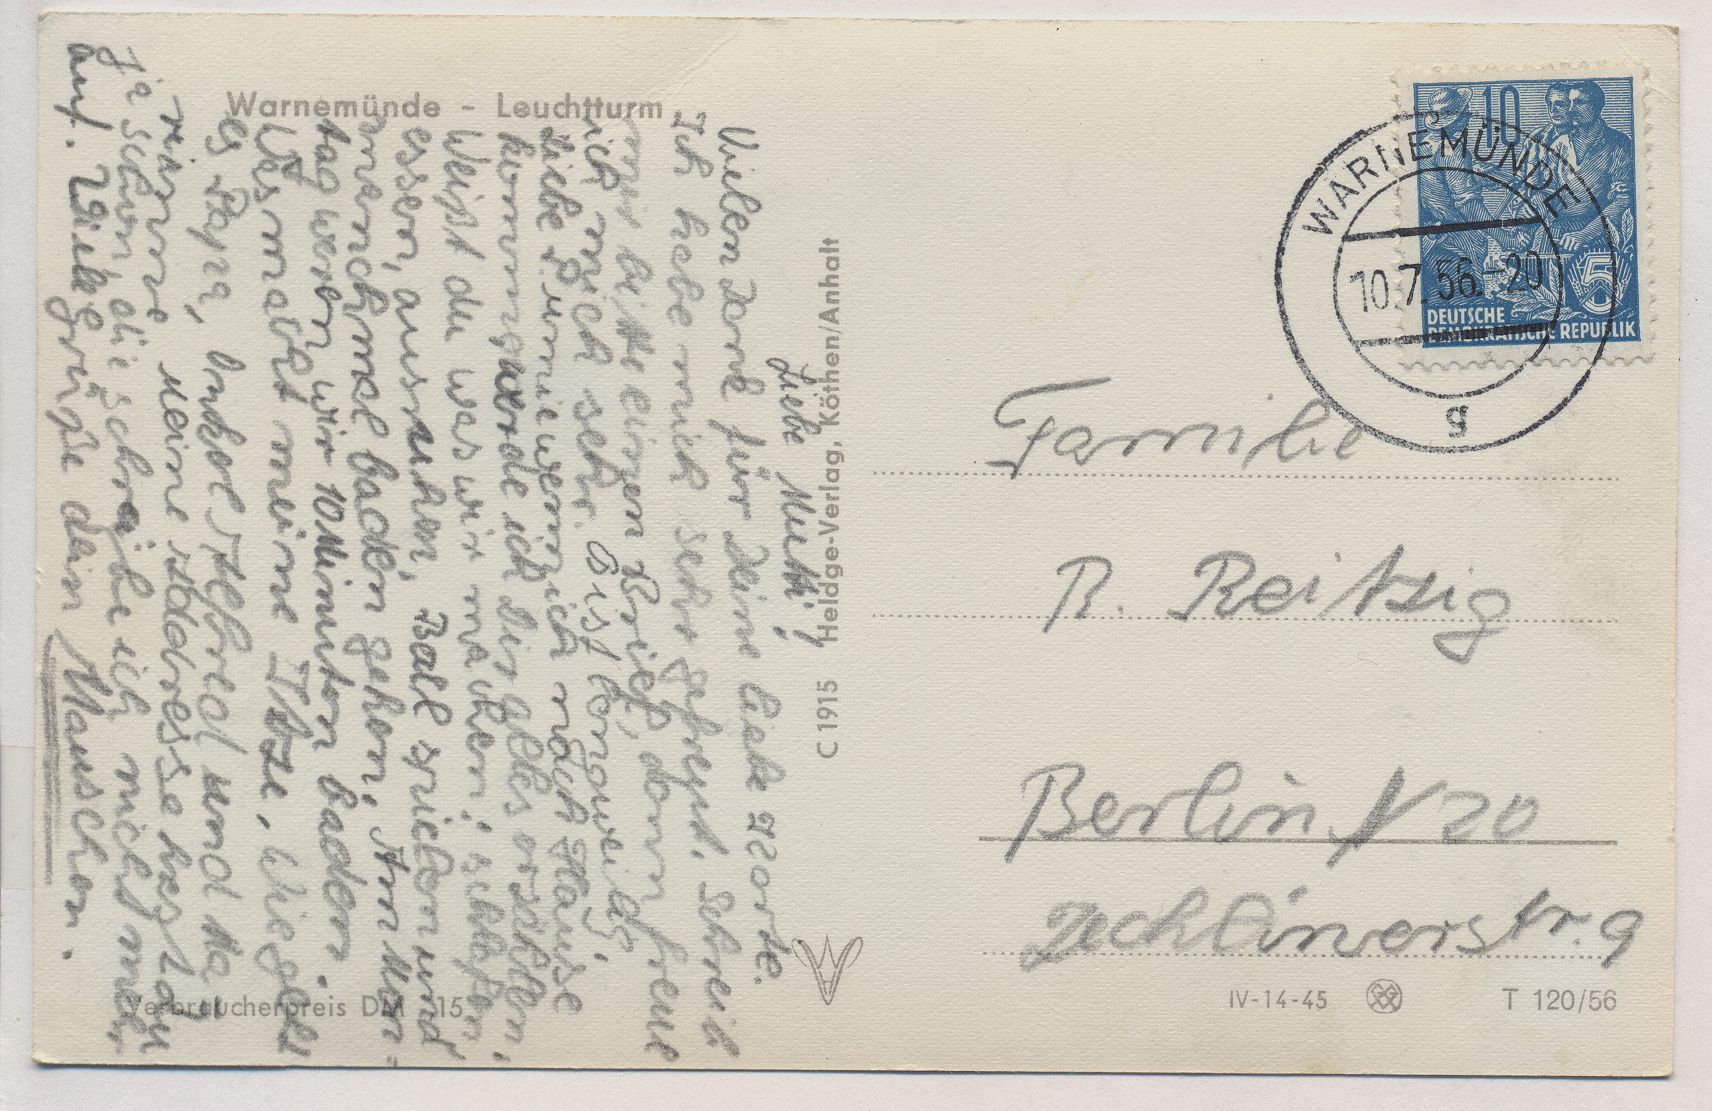 Warnemünde - Leuchtturm
Liebe Mutti!
Vielen Dank für Deine liebe Karte.
Ich habe mich sehr gefreut. Schreib
mir bitte einen Brief, dann freue
ich mich sehr. Bist langweilig,
liebe Pumi wenn ich nach Hause
komme werde ich dir alles erzählen,
Weißt du was wir machen: schlafen
essen, ausruhen, Ball spielen und
manchmal baden gehen. Am Mon-
tag waren wir 10 Minuten baden.
Was macht meine Katze. Wie geht
es Papa, Onkel Alfred und Ma
Meine Addresse hast du
ja schon, die schreibe ich nicht mehr
auf. Viele grüße dein Mauschen.
C 1915 Heldge-Verlag, Köthen/Anhalt
Verbraucherpreis DM -,15
10
DEUTSCHE
DEMOKRATISCHE REPUBLIK
5
WARNEMÜNDE
10.7.56.-20
g
Familie
R. Reitzig
Berlin N 20
Zechlinerstr. 9
IV-14-45
T 120/56